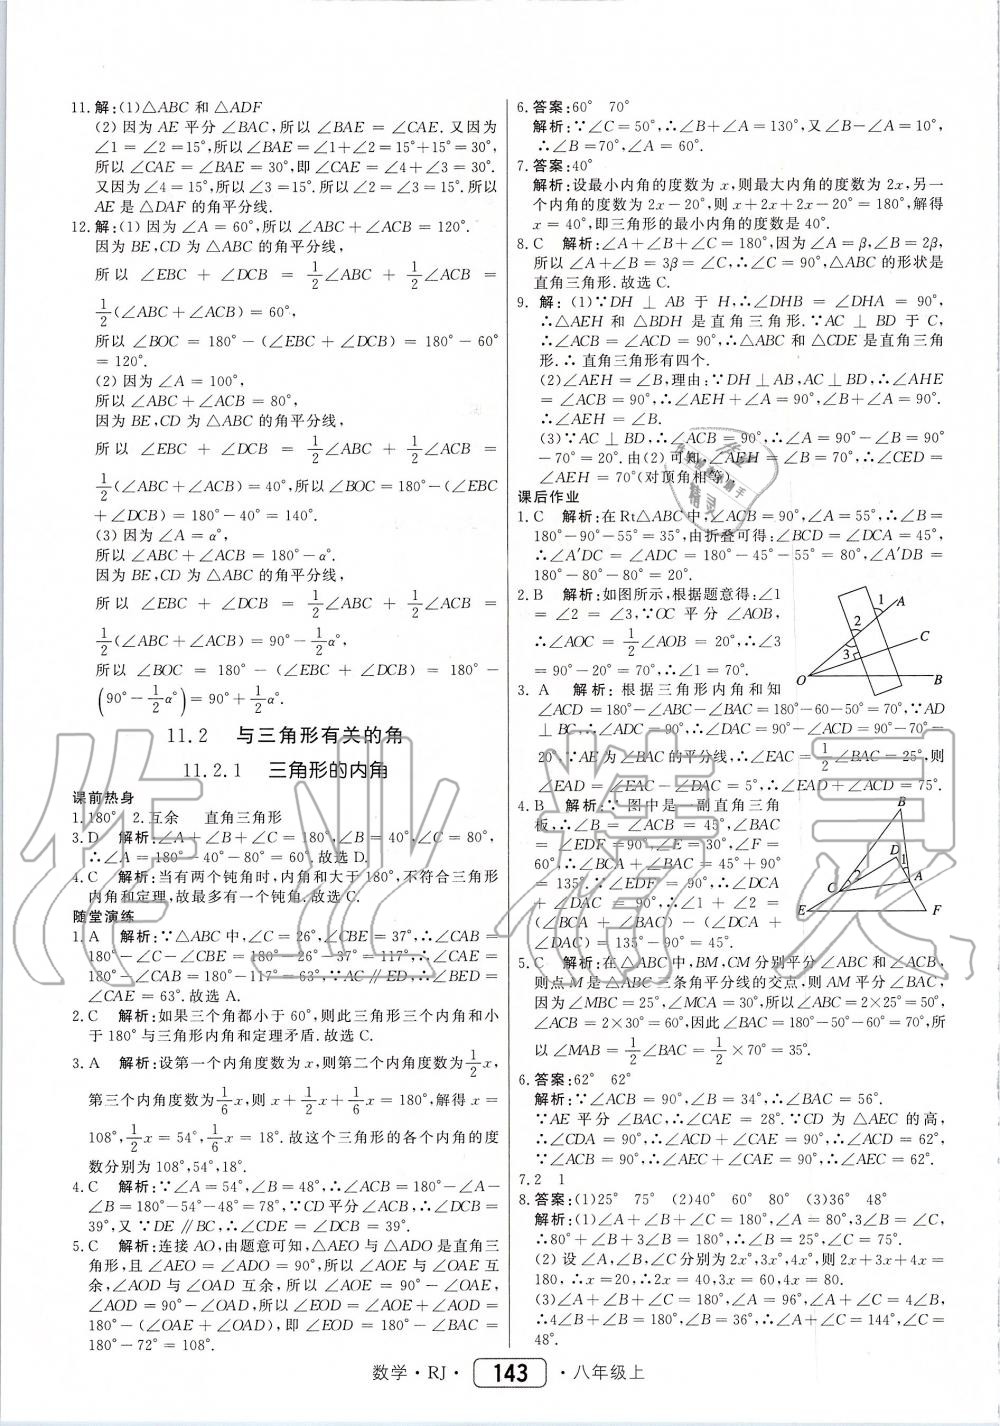 11.解:(1)△ABC 和 △ADF
(2) 因为 AE 平分 ∠BAC,所以 ∠BAE = ∠CAE. 又因为
∠1 = ∠2 =15°,所以∠BAE=∠1+∠2=15°+15°=30°,
所以 ∠CAE=∠BAE=30°,即 ∠CAE=∠4+∠3=30°.
又因为 ∠4=15°,所以∠3=15°.所以∠2=∠3=15°.所以
AE 是 △DAF 的角平分线.
12.解:(1) 因为 ∠A = 60°,所以 ∠ABC+∠ACB=120°.
因为 BE,CD 为 △ABC 的角平分线,
所以 ∠EBC + ∠DCB = 1/2∠ABC + 1/2∠ACB =
1/2(∠ABC+∠ACB)=60°,
所以 ∠BOC = 180° -(∠EBC + ∠DCB)= 180° - 60°
= 120°.
(2) 因为 ∠A = 100°,
所以 ∠ABC+∠ACB = 80°,
因为 BE,CD 为 △ABC 的角平分线,
所以 ∠EBC + ∠DCB = 1/2∠ABC + 1/2∠ACB =
1/2(∠ABC + ∠ACB) = 40°,所以 ∠BOC = 180° -(∠EBC
+∠DCB)= 180° - 40° = 140°.
(3) 因为 ∠A = α°,
所以 ∠ABC+∠ACB = 180° - α°.
因为 BE,CD 为 △ABC 的角平分线,
所以 ∠EBC + ∠DCB = 1/2∠ABC + 1/2∠ACB =
1/2(∠ABC+∠ACB) = 90° - 1/2α°,
所以 ∠BOC = 180° -(∠EBC + ∠DCB)= 180° -
(90° - 1/2α°) = 90° + 1/2α°.
11.2 与三角形有关的角
11.2.1 三角形的内角
课前热身
1.180° 2.互余 直角三角形
3.D 解析:∠A+∠B+∠C=180°,∠B=40°,∠C=80°,
∴∠A=180°-40°-80°=60°.故选 D.
4.C 解析:当有两个钝角时,内角和大于180°,不符合三角形
内角和定理,故最多有一个钝角.故选 C.
随堂演练
1.A 解析:∵△ABC 中,∠C=26°,∠CBE=37°,∴∠CAB=
180°-∠C-∠CBE=180°-26°-37°=117°,∴∠CAE=
180°-∠CAB=180°-117°=63°,∵AC∥ED,∴∠BED=
∠CAE=63°.故选 A.
2.C 解析:如果三个角都小于 60°,则此三角形三个内角和小
于180°与三角形内角和定理矛盾.故选 C.
3.A 解析:设第一个内角度数为 x,则第二个内角度数为1/2x,
第三个内角度数为1/6x,则 x+1/2x+1/6x=180°,解得 x=
108°,1/2x=54°,1/6x=18°.故这个三角形的各个内角的度
数分别为 108°,54°,18°.
4.C 解析:∵∠A=54°,∠B=48°,∴∠ACB=180°-∠A-
∠B=180°-54°-48°=78°,∵CD平分∠ACB,∴∠DCB=
39°,又 ∵DE∥BC,∴∠CDE=∠DCB=39°.
5.C 解析:连接 AO,由题意可知,△AEO 与 △ADO 是直角三
角形,且 ∠AEO = ∠ADO = 90°,所以 ∠AOE 与 ∠OAE 互
余,∠AOD 与 ∠OAD 互余,所以 ∠AOE = 90° - ∠OAE,
∠AOD = 90° - ∠OAD,所以 ∠EOD = ∠AOE+∠AOD =
180° -(∠OAE + ∠OAD),即 ∠EOD = 180° - ∠BAC =
180° - 72° = 108°.
6.答案:60° 70°
解析:∵∠C=50°,∴∠B+∠A=130°,又∠B-∠A=10°,
∴∠B=70°,∠A=60°.
7.答案:40°
解析:设最小内角的度数为 x,则最大内角的度数为 2x,另一
个内角的度数为 2x-20°,则 x+2x+2x-20°=180°,解得
x=40°,即三角形的最小内角的度数是 40°.
8.C 解析:∠A+∠B+∠C=180°,因为∠A=β,∠B=2β,
所以∠A+∠B=3β=∠C,∴∠C=90°,△ABC 的形状是
直角三角形.故选 C.
9.解:(1)∵DH ⊥ AB 于 H,∴∠DHB = ∠DHA = 90°,
∴△AEH 和 △BDH 是直角三角形.∵AC ⊥ BD 于 C,
∴∠ACB = ∠ACD = 90°,∴△ABC 和 △CDE 是直角三角
形.∴ 直角三角形有四个.
(2)∠AEH=∠B,理由:∵DH⊥AB,AC⊥BD,∴∠AHE
=∠ACB=90°,∴∠AEH+∠A=90°,∠B+∠A=90°.
∴∠AEH=∠B.
(3)∵AC⊥BD,∴∠ACB=90°,∴∠A=90°-∠B=90°
-70°=20°.由(2)可知,∠AEH=∠B=70°,∴∠CED=
∠AEH=70°(对顶角相等).
课后作业
1.C 解析:在Rt△ABC中,∠ACB=90°,∠A=55°,∴∠B=
180°-90°-55°=35°,由折叠可得:∠BCD=∠DCA=45°,
∴∠A′DC = ∠ADC = 180° - 45° - 55° = 80°,∴∠A′DB =
180° - 80° - 80° = 20°.
2.B 解析:如图所示,根据题意得:∠1
=∠2=∠3,∵OC 平分 ∠AOB,
∴∠AOC=1/2∠AOB=20°,∴∠3
=90°-20°=70°,∴∠1=70°.
1
A
2
C
3
O
B
3.A 解析:根据三角形内角和知
∠ACD=180°-∠ABC-∠BAC=180°-60-50°=70°,∵AD
⊥BC,∴∠ADC=90°,∴∠DAC=90°-∠ACD=90°-70°=
20°.∵AE 为∠BAC 的平分线,∴∠EAC=1/2∠BAC=25°,则
∠EAD=∠EAC-∠DAC=5°,∴∠EAD+∠ACD=75°.
4.B 解析:∵ 图中是一副直角三角
板,∴∠ACB = 45°,∠BAC
= ∠EDF = 90°,∠E = 30°,∠F =
60°.∴∠BCA+∠BAC=45°+90°
=135°.∵∠EDF=90°,∴∠DCA
+∠DAC = 90°,∴∠1+∠2 =
(∠BCA + ∠BAC) - (∠DCA +
∠DAC)=135°-90°=45°.
B
D
1
2
C
A
E
F
5.C 解析:在△ABC中,BM,CM分别平分∠ABC和∠ACB,
则点 M 是△ABC 三条角平分线的交点,则 AM 平分∠BAC,
因为∠MBC=25°,∠MCA=30°,所以∠ABC=2×25°=50°,
∠ACB=2×30°=60°,因此∠BAC=180°-50°-60°=70°,所
以 ∠MAB=1/2∠BAC=1/2×70°=35°.
6.答案:62° 62°
解析:∵∠ACB = 90°,∠B = 34°,∴∠BAC = 56°.
∵AE 平分 ∠BAC,∴∠CAE = 28°.∵CD 为 △AEC 的高,
∴∠CDA = 90°,∴∠ACD+∠CAE = 90°,∴∠ACD = 62°,
∵∠ACB=90°,∴∠AEC+∠CAE=90°,∴∠AEC=62°.
7.2 1
8.答案:(1)25° 75° (2)40° 60° 80° (3)36° 48°
解析:(1)∠A+∠B+∠C=180°,∠A=80°,3∠B=∠C,
∴80°+∠B+3∠B=180°,∴∠B=25°,∠C=75°.
(2) 设∠A,∠B,∠C 分别为 2x°,3x°,4x°,则 2x+3x+4x=
180,∴x=20,∴2x=40,3x=60,4x=80.
(3)∠A+∠B+∠C=180°,∠A=96°,∠A+∠C=4∠B,
∴4∠B+∠B=180°,∴∠B=36°,∴∠A+∠C=144°,∠C=
48°.
数学·RJ· 143 ·八年级上
作业精灵